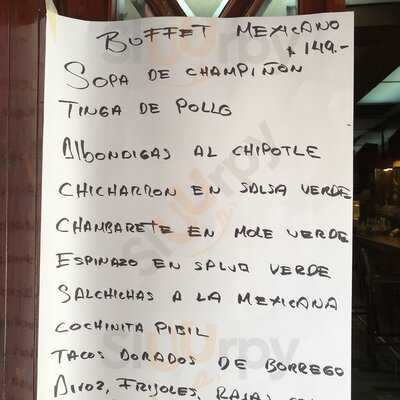 BUFFET MEXICANO
$ 149.-
SOPA DE CHAMPIÑON
TINGA DE POLLO
AlbONDIGAS AL CHIPOTLE
CHICHARRON EN SALSA VERDE
CHAMBARETE EN MOLE VERDE
ESPINAZO EN SALVA VERDE
SALCHICHAS A LA MEXICANA
COCHINITA PIBIL
TACOS DORADOS DE BORREGO
ARROZ, FRIJOLES, RAJAS
Sluurpy